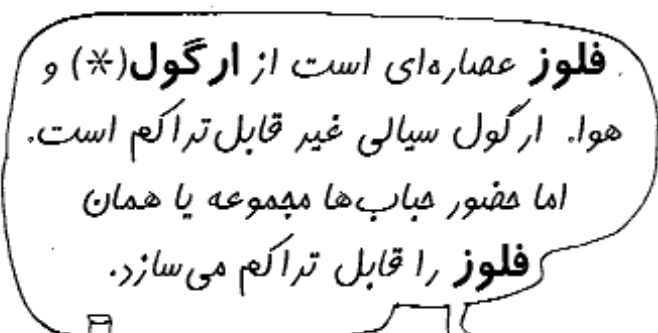 فلوز عصاره‌ای است از ارگول(*) و
هوا. ارگول سیالی غیر قابل تراکم است.
اما حضور حباب‌ها مجموعه یا همان
فلوز را قابل تراکم می‌سازد.